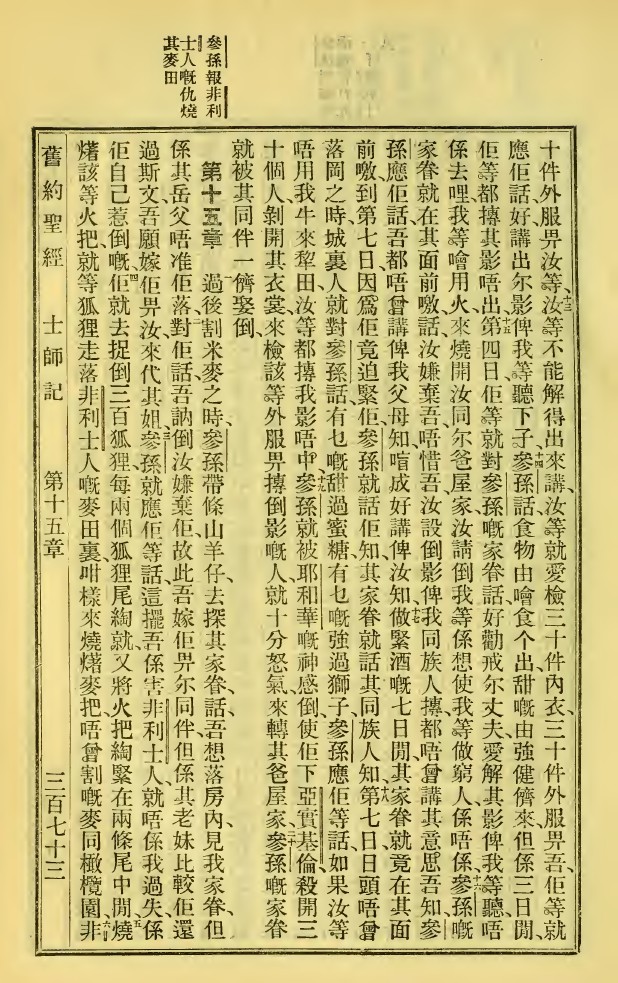 參孫報非利
士人嘅仇燒
其麥田
十件外服畀汝等、十三汝等不能解得出來講、汝等就愛檢三十件內衣、三十件外服畀吾、佢等就
應佢話、好講出尔影俾我等聽下子、十四參孫話、食物由噲食个出、甜嘅由強健儕來、但係三日閒、
佢等都摶其影唔出、十五第四日佢等就對參孫嘅家眷話、好勸戒尔丈夫、愛解其影俾我等聽、唔
係去哩、我等噲用火來燒開汝同尔爸屋家、汝請倒我等係想使我等做窮人、係唔係、十六參孫嘅
家眷就在其面前噭、話、汝嫌棄吾、唔惜吾、汝設倒影俾我同族人摶、都唔曾講其意思吾知、參
孫應佢話、吾都唔曾講俾我父母知、喑成好講俾汝知、十七做緊酒嘅七日閒、其家眷就竟在其面
前噭、到第七日、因爲佢竟迫緊佢、參孫就話佢知、其家眷就話其同族人知、十八第七日日頭唔曾
落岡之時、城裏人就對參孫話、有乜嘅甜過蜜糖、有乜嘅強過獅子、參孫應佢等話、如果汝等
唔用我牛來犂田、汝等都摶我影唔中、十九參孫就被耶和華嘅神感倒、使佢下亞實基倫、殺開三
十個人、剝開其衣裳、來檢該等外服畀摶倒影嘅人、就十分怒氣、來轉其爸屋家、二十參孫嘅家眷
就被其同伴一儕娶倒、
第十五章 一過後割米麥之時、參孫帶條山羊仔、去探其家眷、話、吾想落房內、見我家眷、但
係其岳父唔准佢落、二對佢話、吾訥倒汝嫌棄佢、故此吾嫁佢畀尔同伴、但係其老妹比較佢還
過斯文、吾願嫁佢畀汝、來代其姐、三參孫就應佢等話、這擺吾係害非利士人、就唔係我過失、係
佢自己惹倒嘅、四佢就去捉倒三百狐狸、每兩個狐狸尾綯就、又將火把綯緊在兩條尾中閒、五燒
㷮該等火把、就等狐狸走落非利士人嘅麥田裏、咁樣來燒㷮麥把、唔曾割嘅麥、同橄欖園、六非
舊約聖經 士師記 第十五章 三百七十三